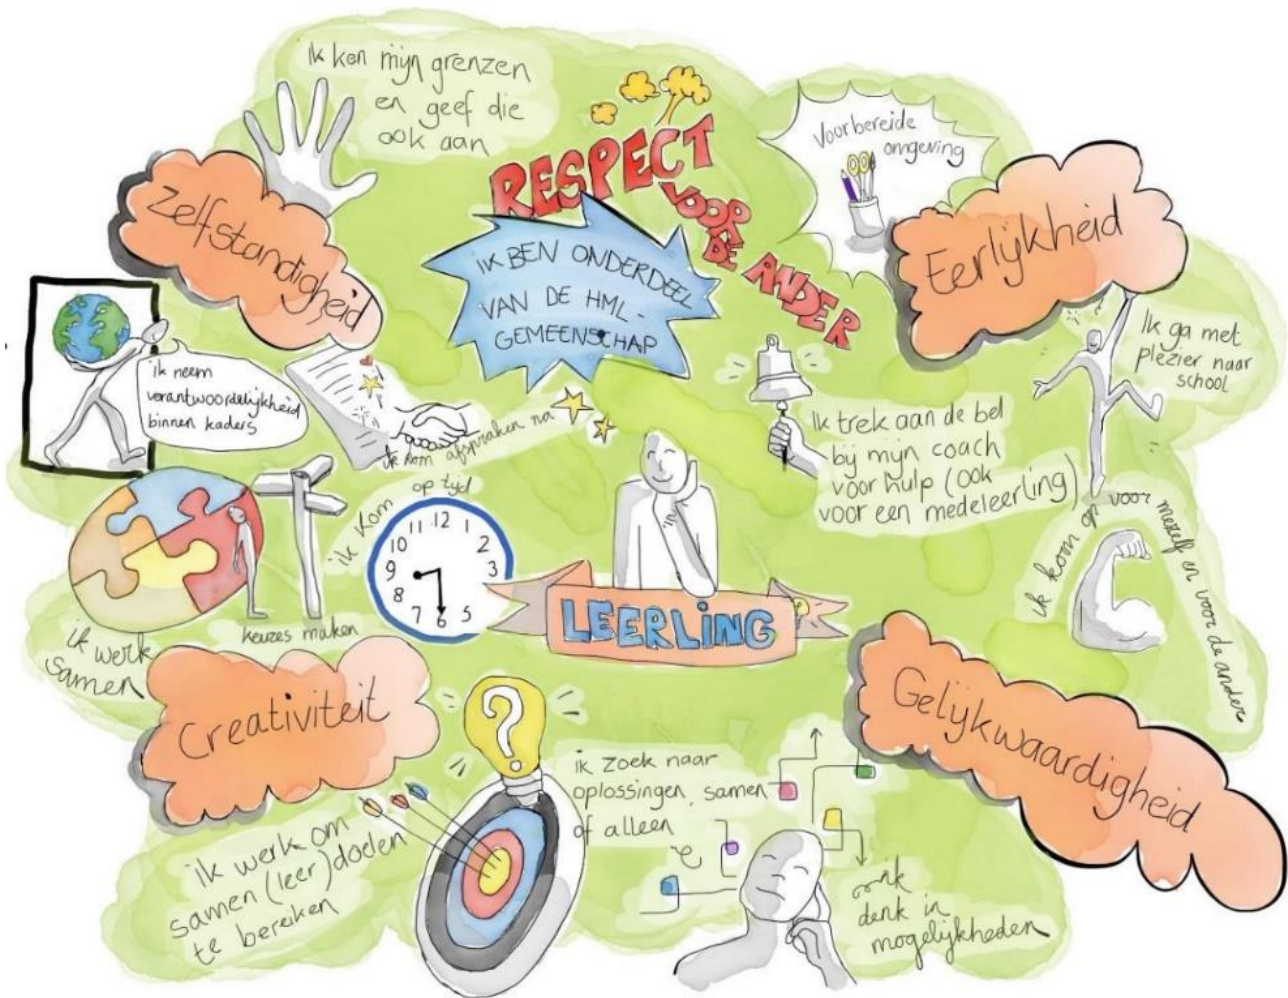 Ik ken mijn grenzen
en geef die
ook aan
RESPECT
VOOR
DE
ANDER
Voorbereide
omgeving
Zelfstandigheid
IK BEN ONDERDEEL
VAN DE HML-
GEMEENSCHAP
Eerlijkheid
ik neem
verantwoordelijkheid
binnen kaders
ik kom afspraken na
Ik ga met
plezier naar
school
Ik trek aan de bel
bij mijn coach
voor hulp (ook
voor een medeleerling)
ik kom op tijd
11 12 1
10 2
9 3
8
7 6 5
ik kom op voor mezelf en voor de ander
ik werk
samen
keuzes maken
LEERLING
Creativiteit
Gelijkwaardigheid
?
ik zoek naar
oplossingen, samen
of alleen
ik werk om
samen (leer)doelen
te bereiken
ik
denk in
mogelijkheden